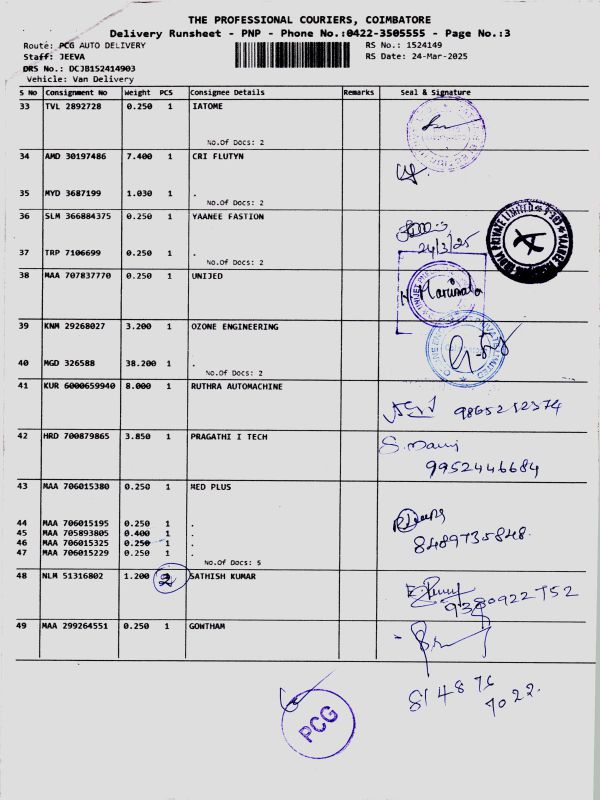 THE PROFESSIONAL COURIERS, COIMBATORE
Delivery Runsheet - PNP - Phone No.:0422-3505555 - Page No.:3
Route: PCG AUTO DELIVERY RS No.: 1524149
Staff: JEEVA RS Date: 24-Mar-2025
DRS No.: DCJB152414903
Vehicle: Van Delivery
S No Consignment No Weight PCS Consignee Details Remarks Seal & Signature
33 TVL 2892728 0.250 1 IATOME
No.Of Docs: 2
34 AMD 30197486 7.400 1 CRI FLUTYN
35 MYD 3687199 1.030 1 .
No.Of Docs: 2
36 SLM 366884375 0.250 1 YAANEE FASTION
24/3/25
37 TRP 7106699 0.250 1 .
No.Of Docs: 2
38 MAA 707837770 0.250 1 UNIJED
39 KNM 29268027 3.200 1 OZONE ENGINEERING
40 MGD 326588 38.200 1 .
No.Of Docs: 2
41 KUR 6000659940 8.000 1 RUTHRA AUTOMACHINE
9865212374
42 HRD 700879865 3.850 1 PRAGATHI I TECH
S. Mani
9952446684
43 MAA 706015380 0.250 1 MED PLUS
44 MAA 706015195 0.250 1 .
45 MAA 705893805 0.400 1 .
46 MAA 706015325 0.250 1 .
47 MAA 706015229 0.250 1 .
8489735848
No.Of Docs: 5
48 NLM 51316802 1.200 2 SATHISH KUMAR
9380922752
49 MAA 299264551 0.250 1 GOWTHAM
814876
7022.
PCG